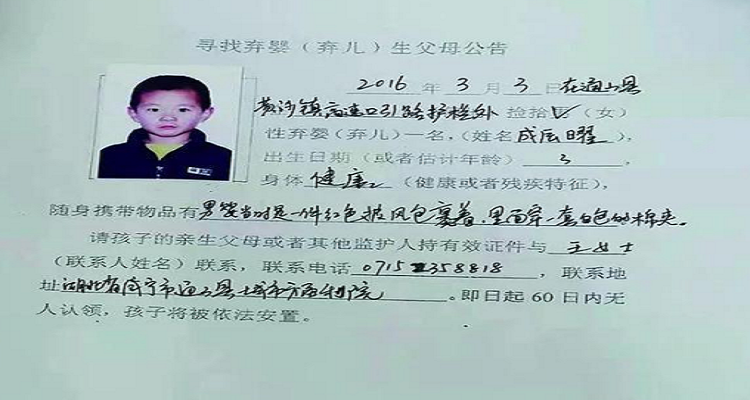 寻找弃婴（弃儿）生父母公告
2016 年 3 月 3 日在通山县
黄沙镇高速口引路护栏外 捡拾男（女）
性弃婴（弃儿）一名，（姓名 成辰曜 ），
出生日期（或者估计年龄） 3 ，
身体 健康 （健康或者残疾特征），
随身携带物品有男婴当时是一件红色披风包裹着，里面穿一套白色的棉夹。
请孩子的亲生父母或者其他监护人持有效证件与 王女士
（联系人姓名）联系，联系电话 0715 2358818 ，联系地
址湖北省咸宁市通山县城市方福利院 。即日起 60 日内无
人认领，孩子将被依法安置。